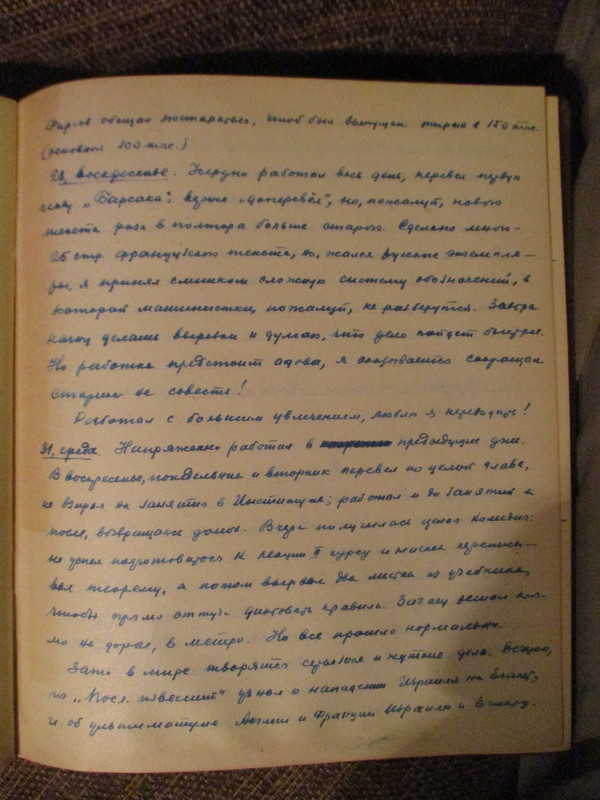 Фиргов обещал постараться, чтоб был выпущен тираж в 150 тыс.
(основной 100 тыс.)
28, воскресенье. Усердно работал весь день, перевел первую
главу „Барсака“, вернее „доперевёл“, но, пожалуй, нового
текста раза в полтора больше старого. Сделано много –
25 стр. французского текста, но, жалея русские экземпля –
ры, я принял слишком сложную систему обозначений, в
которой машинистки, пожалуй, не разберутся. Завтра
начну делать вырезки и думаю, что дело пойдет быстрее.
Но работка предстоит адова, я оказывается сокращал
старика не совестя!
Работал с большим увлечением, люблю я переводить!
31, среда. Напряженно работал в предыдущие дни.
В воскресенье, понедельник и вторник перевел по целой главе,
не взирая на занятия в Институте; работал и до занятий и
после, возвращаясь домой. Вчера получилась целая комедия:
не успел подготовиться к лекции II курсу и наспех переписы –
вал теорему, а потом вырвал два листка из учебника,
чтобы прямо оттуда диктовать правила. Задачу решал пря-
мо на дороге, в метро. Но все прошло нормально.
Зато в мире творятся серьезные и жуткие дела. Вечером,
из „Посл. известий“ узнал о нападении Израиля на Египет,
и об ультиматуме Англии и Франции Израилю и Египту.